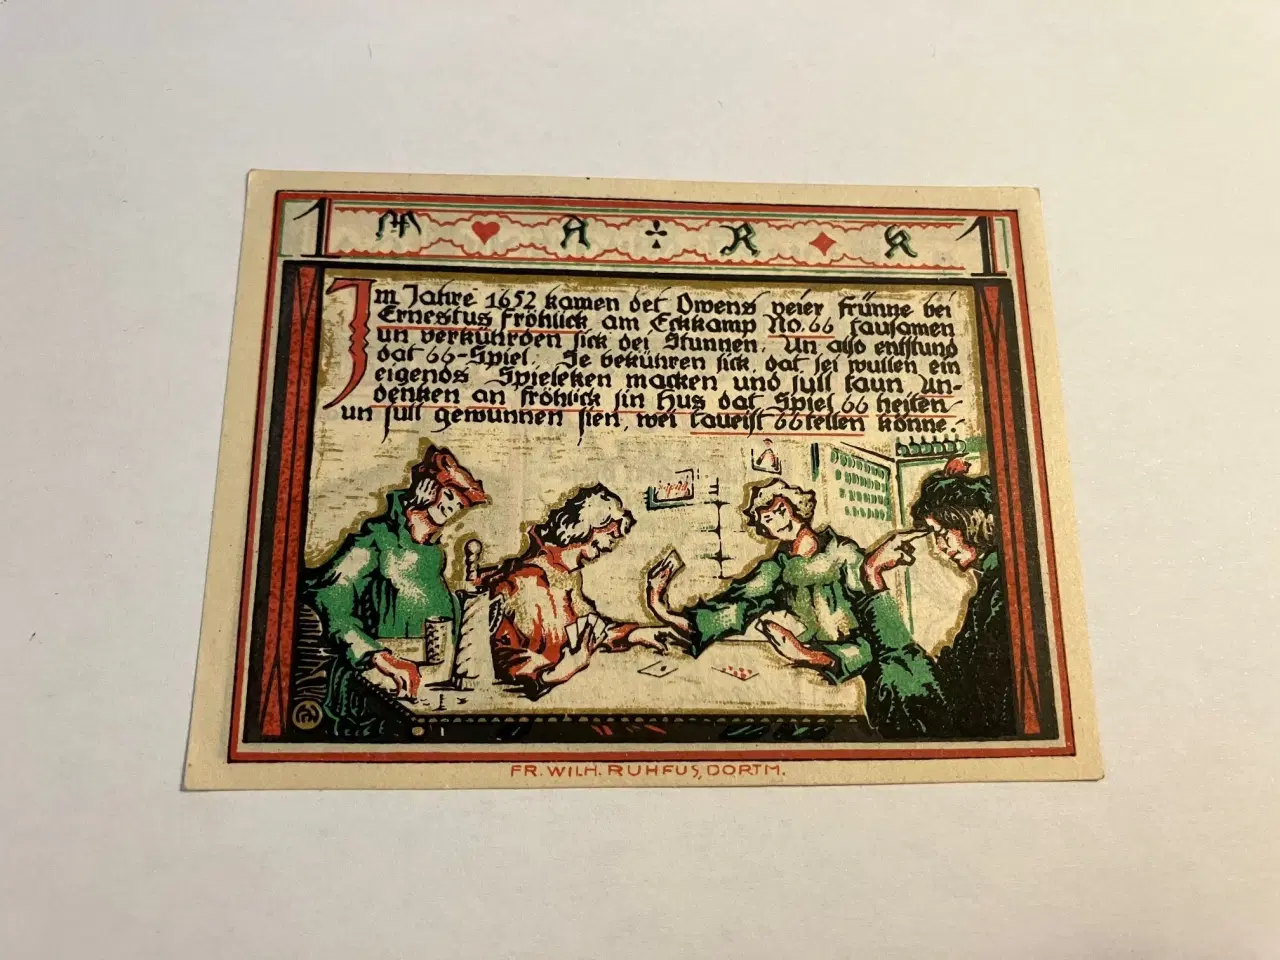 1 M A R K 1
Im Jahre 1652 kamen det Owens veier Frünne bei
Ernestus Fröhlick, am Eckkamp No. 66 tausamen
un verkührden sick dei Stunnen. Un also entstund
dat 66-Spiel. Se bekühren sick, dat sei wullen ein
eigends Spieleken macken und sull taun An-
denken an Fröhlick sin Hus dat Spiel 66 heiten
un sull gewunnen sien, wei taueist 66 tellen könne.
FR. WILH. RUHFUS, DORTM.